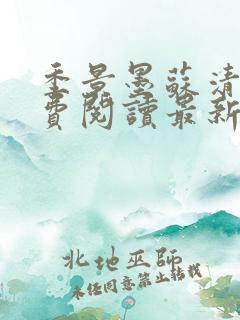 季景墨蘇清
費閱讀最新
北地巫師
未經同意禁止轉載